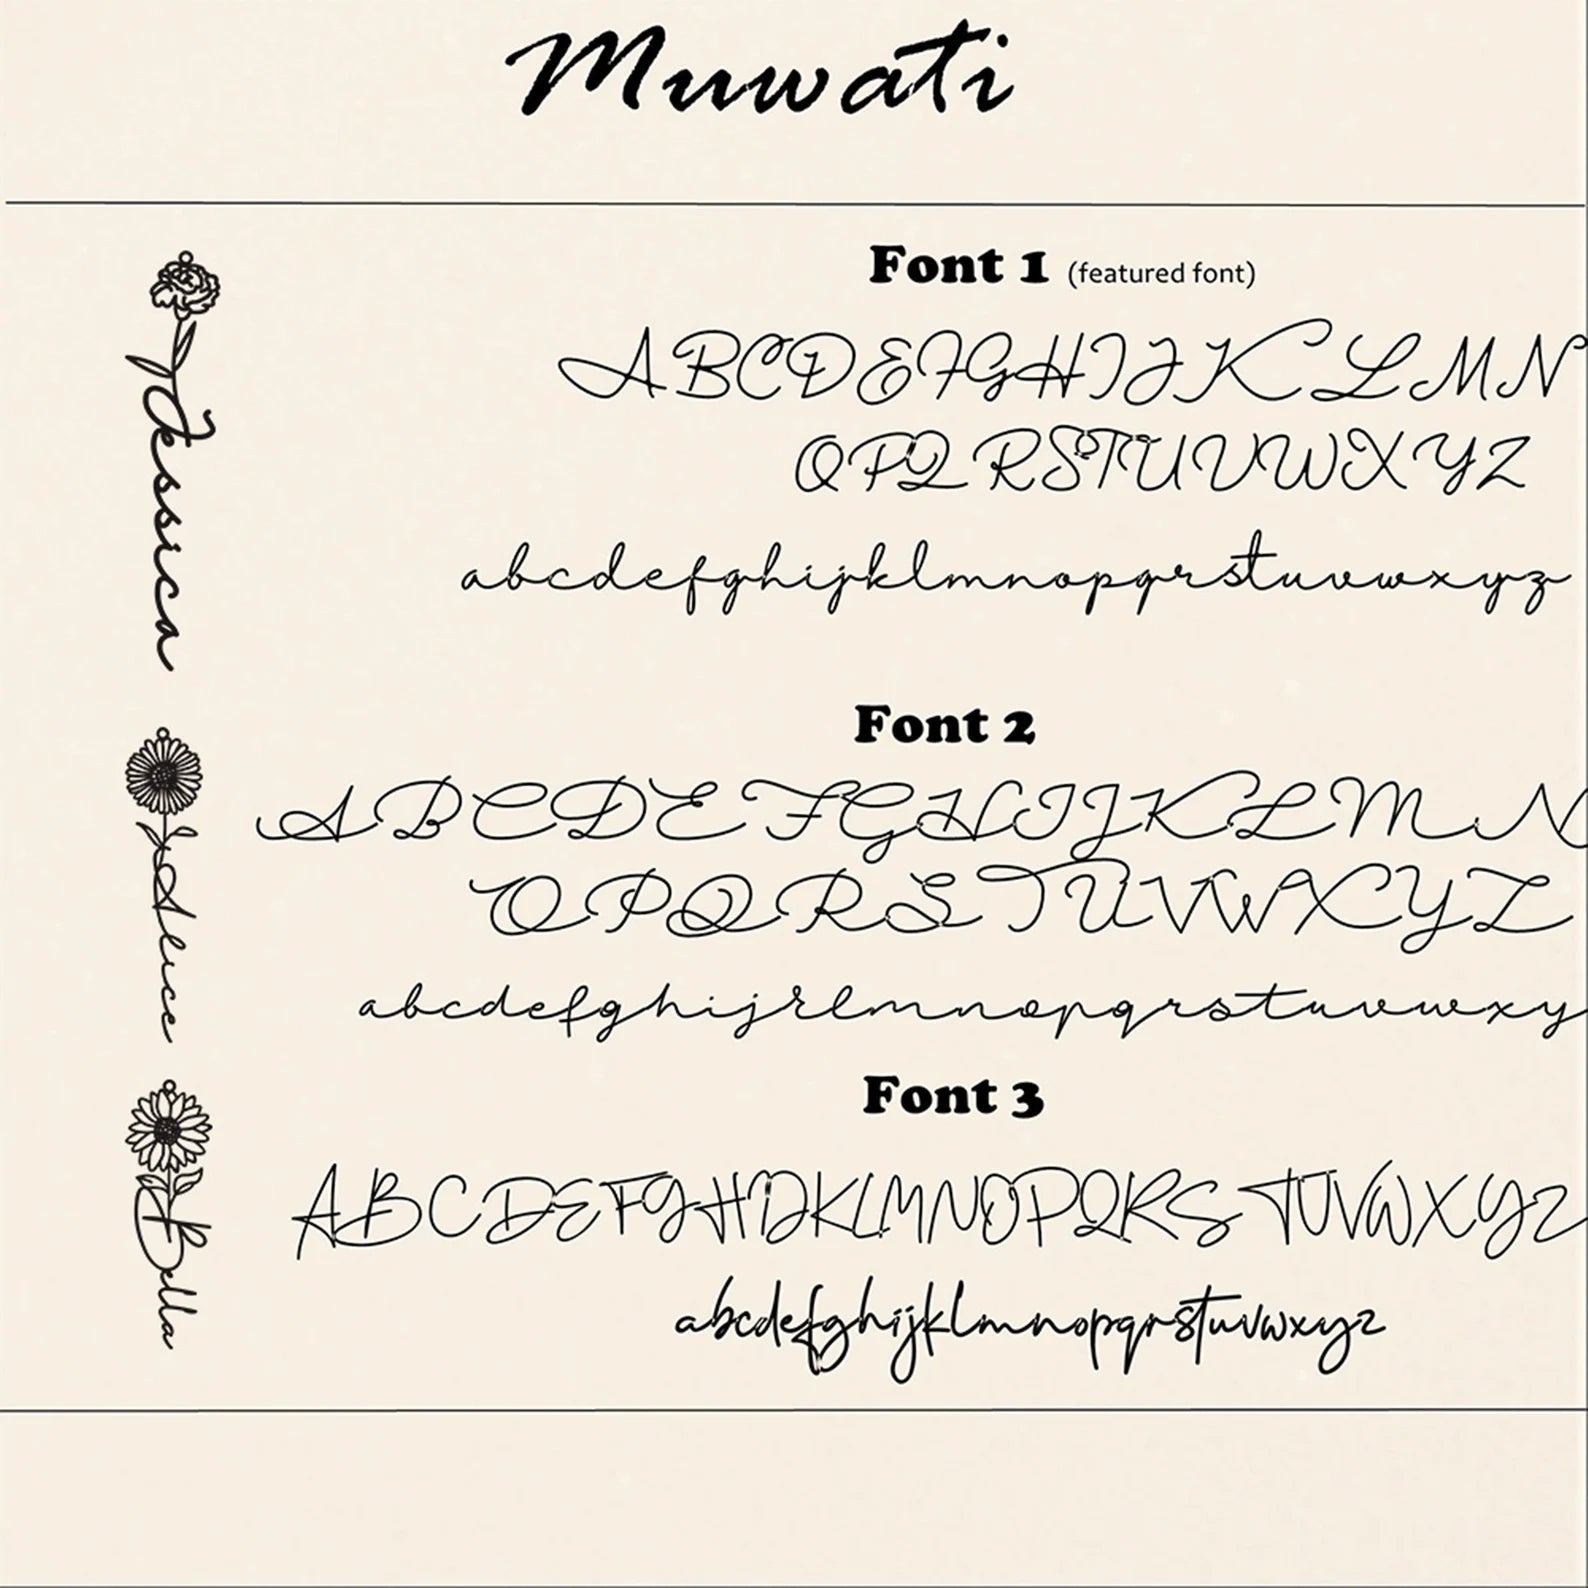 Muwati
Font 1 (featured font)
ABCDEFGHIJKLMN
OPQRSTUVWXYZ
abcdefghijklmnopqrstuvwxyz
Jessica
Font 2
ABCDEFGHIJKLMN
OPQRSTUVWXYZ
abcdefghijklmnopqrstuvwxy
Alice
Font 3
ABCDEFGHIJKLMNOPQRSTUVWXYZ
abcdefghijklmnopqrstuvwxyz
Bella